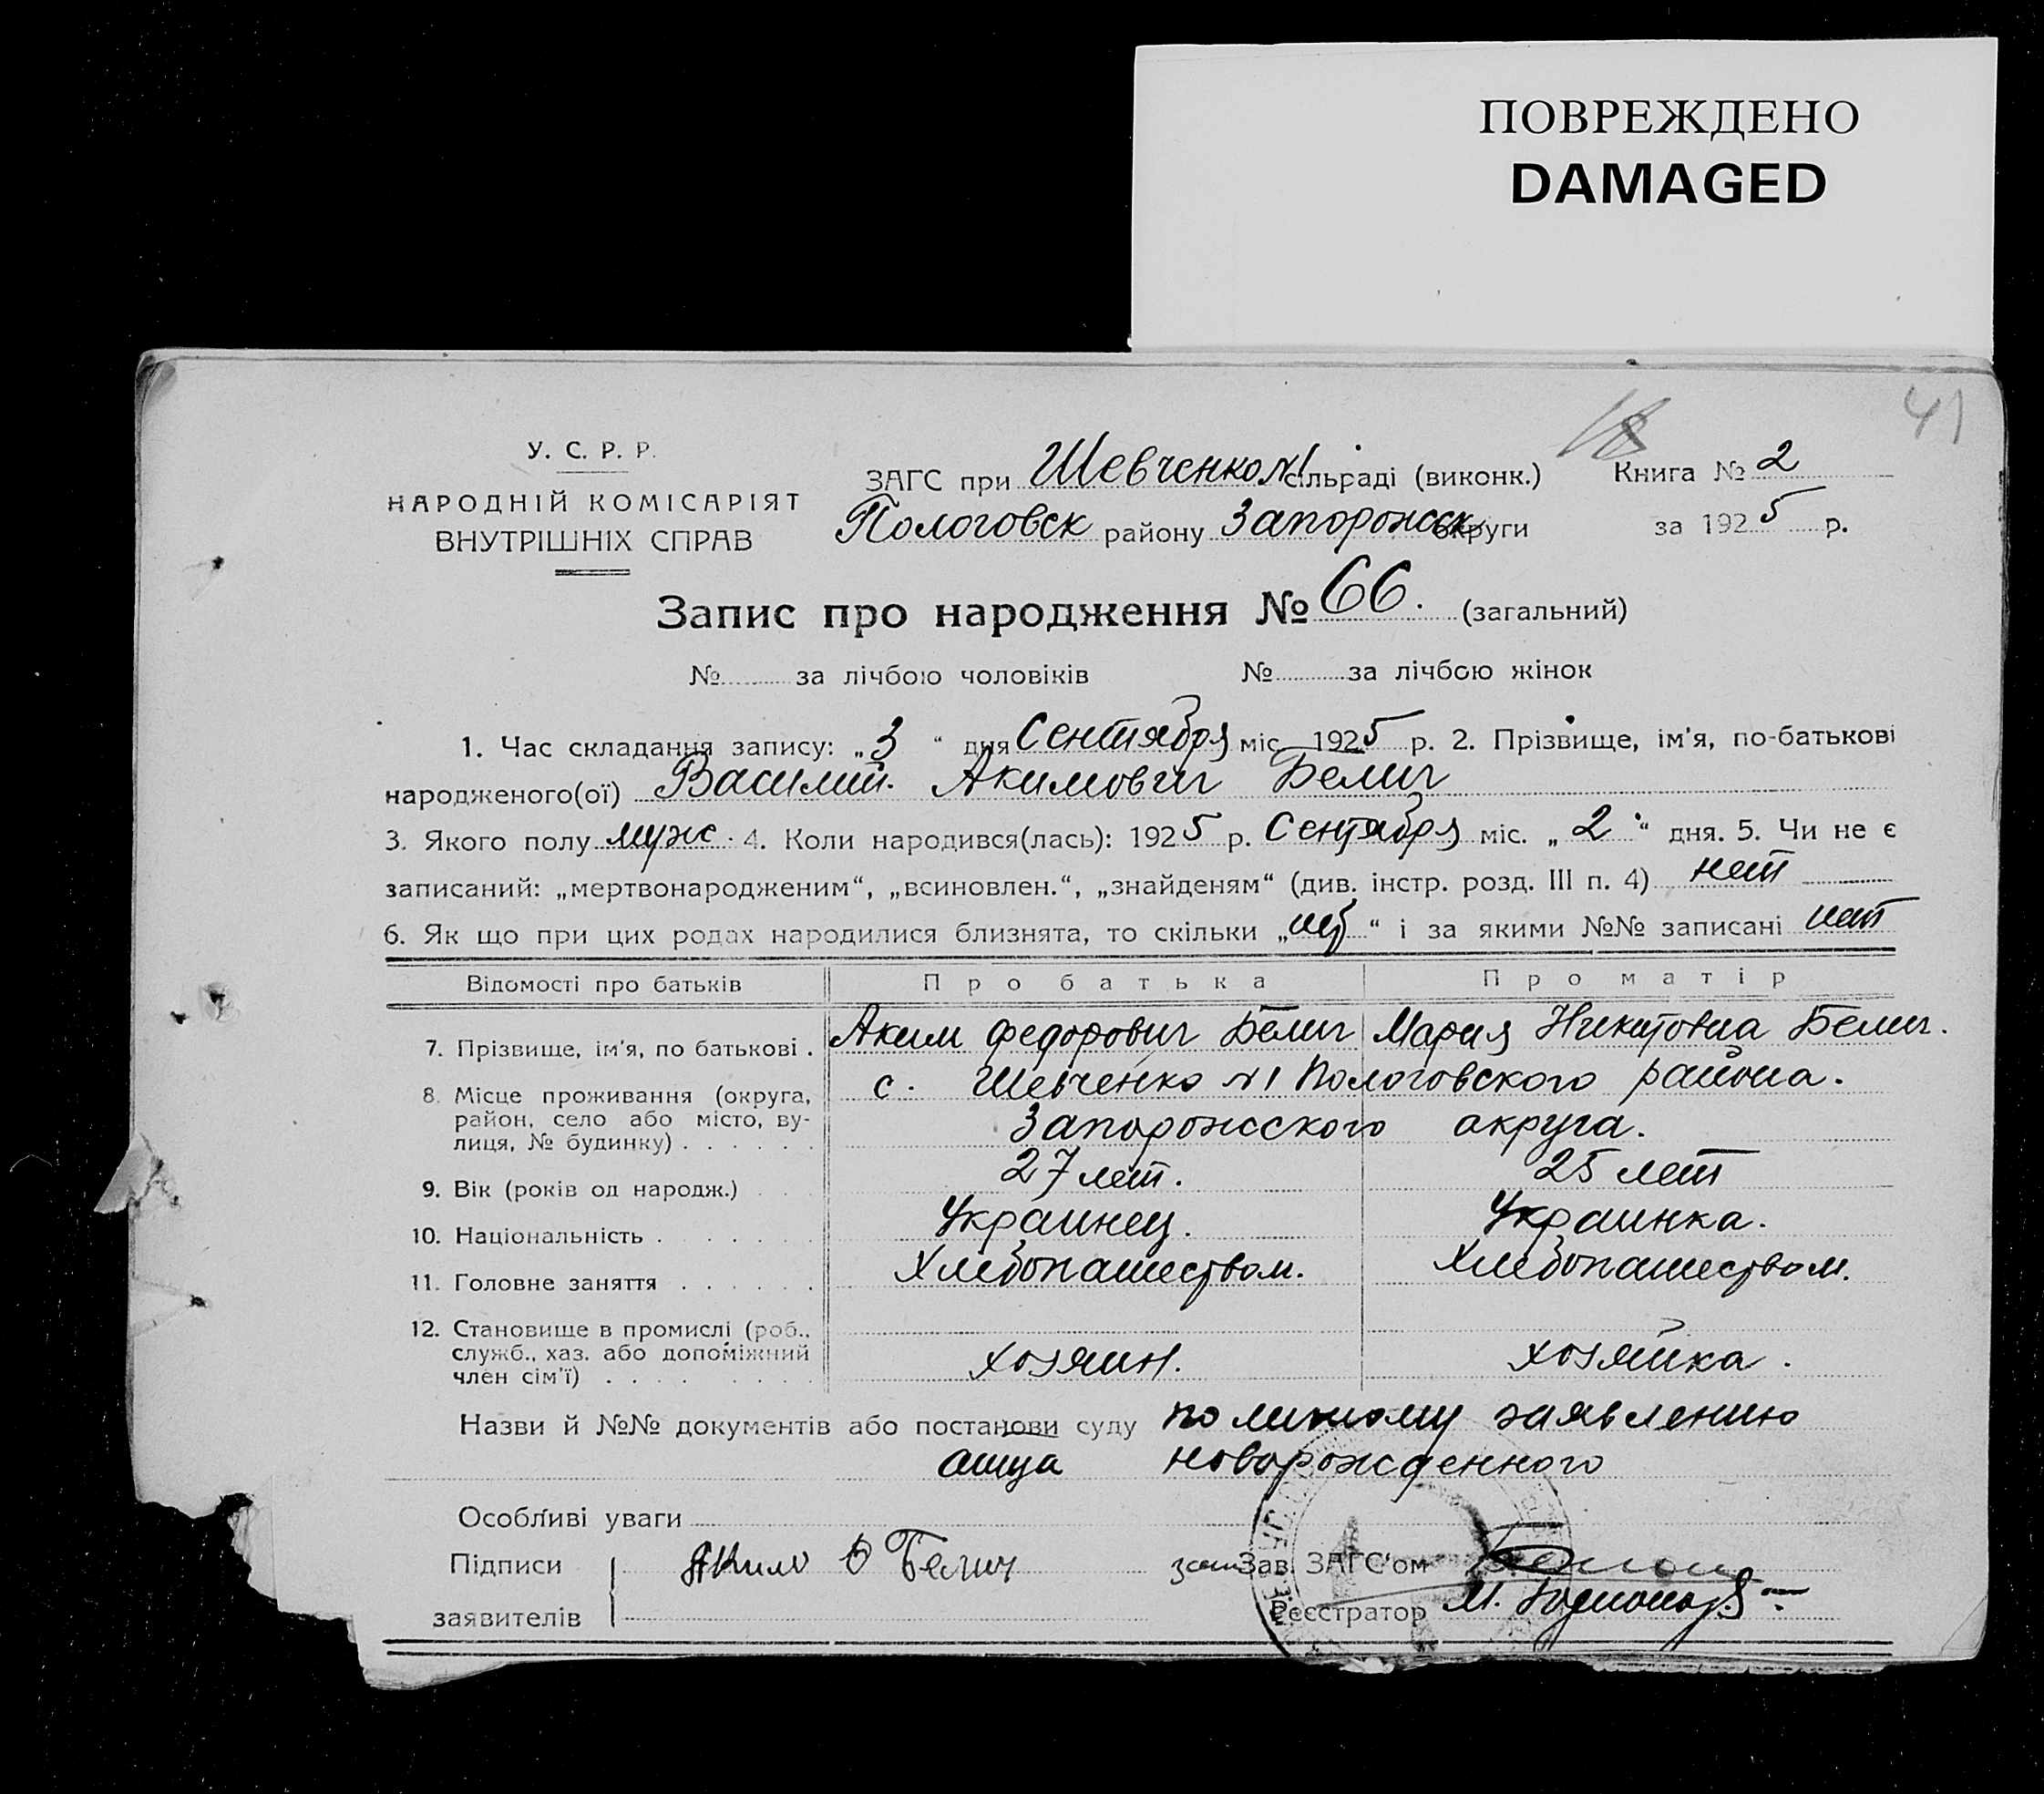 ПОВРЕЖДЕНО
DAMAGED
18
41
У. С. Р. Р.
НАРОДНІЙ КОМІСАРІЯТ
ВНУТРІШНІХ СПРАВ
ЗАГС при Шевченко №1 сільраді (виконк.) Книга № 2
Пологовск району Запорожск округи за 1925 р.
Запис про народження № 66. (загальний)
№ за лічбою чоловіків № за лічбою жінок
1. Час складання запису: „3“ дня Сентября міс. 1925 р. 2. Прізвище, ім'я, по-батькові
народженого(ої) Василий Акимович Белич
3. Якого полу муж 4. Коли народився(лась): 1925 р. Сентября міс. „2“ дня. 5. Чи не є
записаний: „мертвонародженим“, „всиновлен.“, „знайденям“ (див. інстр. розд. III п. 4) нет
6. Як що при цих родах народилися близнята, то скільки „ “ і за якими №№ записані нет
Відомості про батьків Про батька Про матір
7. Прізвище, ім'я, по батькові . Аким Федорович Белич Мария Никитовна Белич.
8. Місце проживання (округа, с. Шевченко №1 Пологовского района.
район, село або місто, ву-
лиця, № будинку) . . . . . . Запорожского округа.
9. Вік (років од народж.) . . . 27 лет. 25 лет
10. Національність . . . . . . Украинец. Украинка.
11. Головне заняття . . . . . . Хлебопашеством. Хлебопашеством.
12. Становище в промислі (роб.,
служб., хаз. або допоміжний хозяин. хозяйка.
член сім'ї) . . . . . . . . .
Назви й №№ документів або постанови суду по личному заявлению
отца новорожденного
Особливі уваги
Підписи Аким Ф Белич зам Зав. ЗАГС'ом
заявителів Реєстратор М.